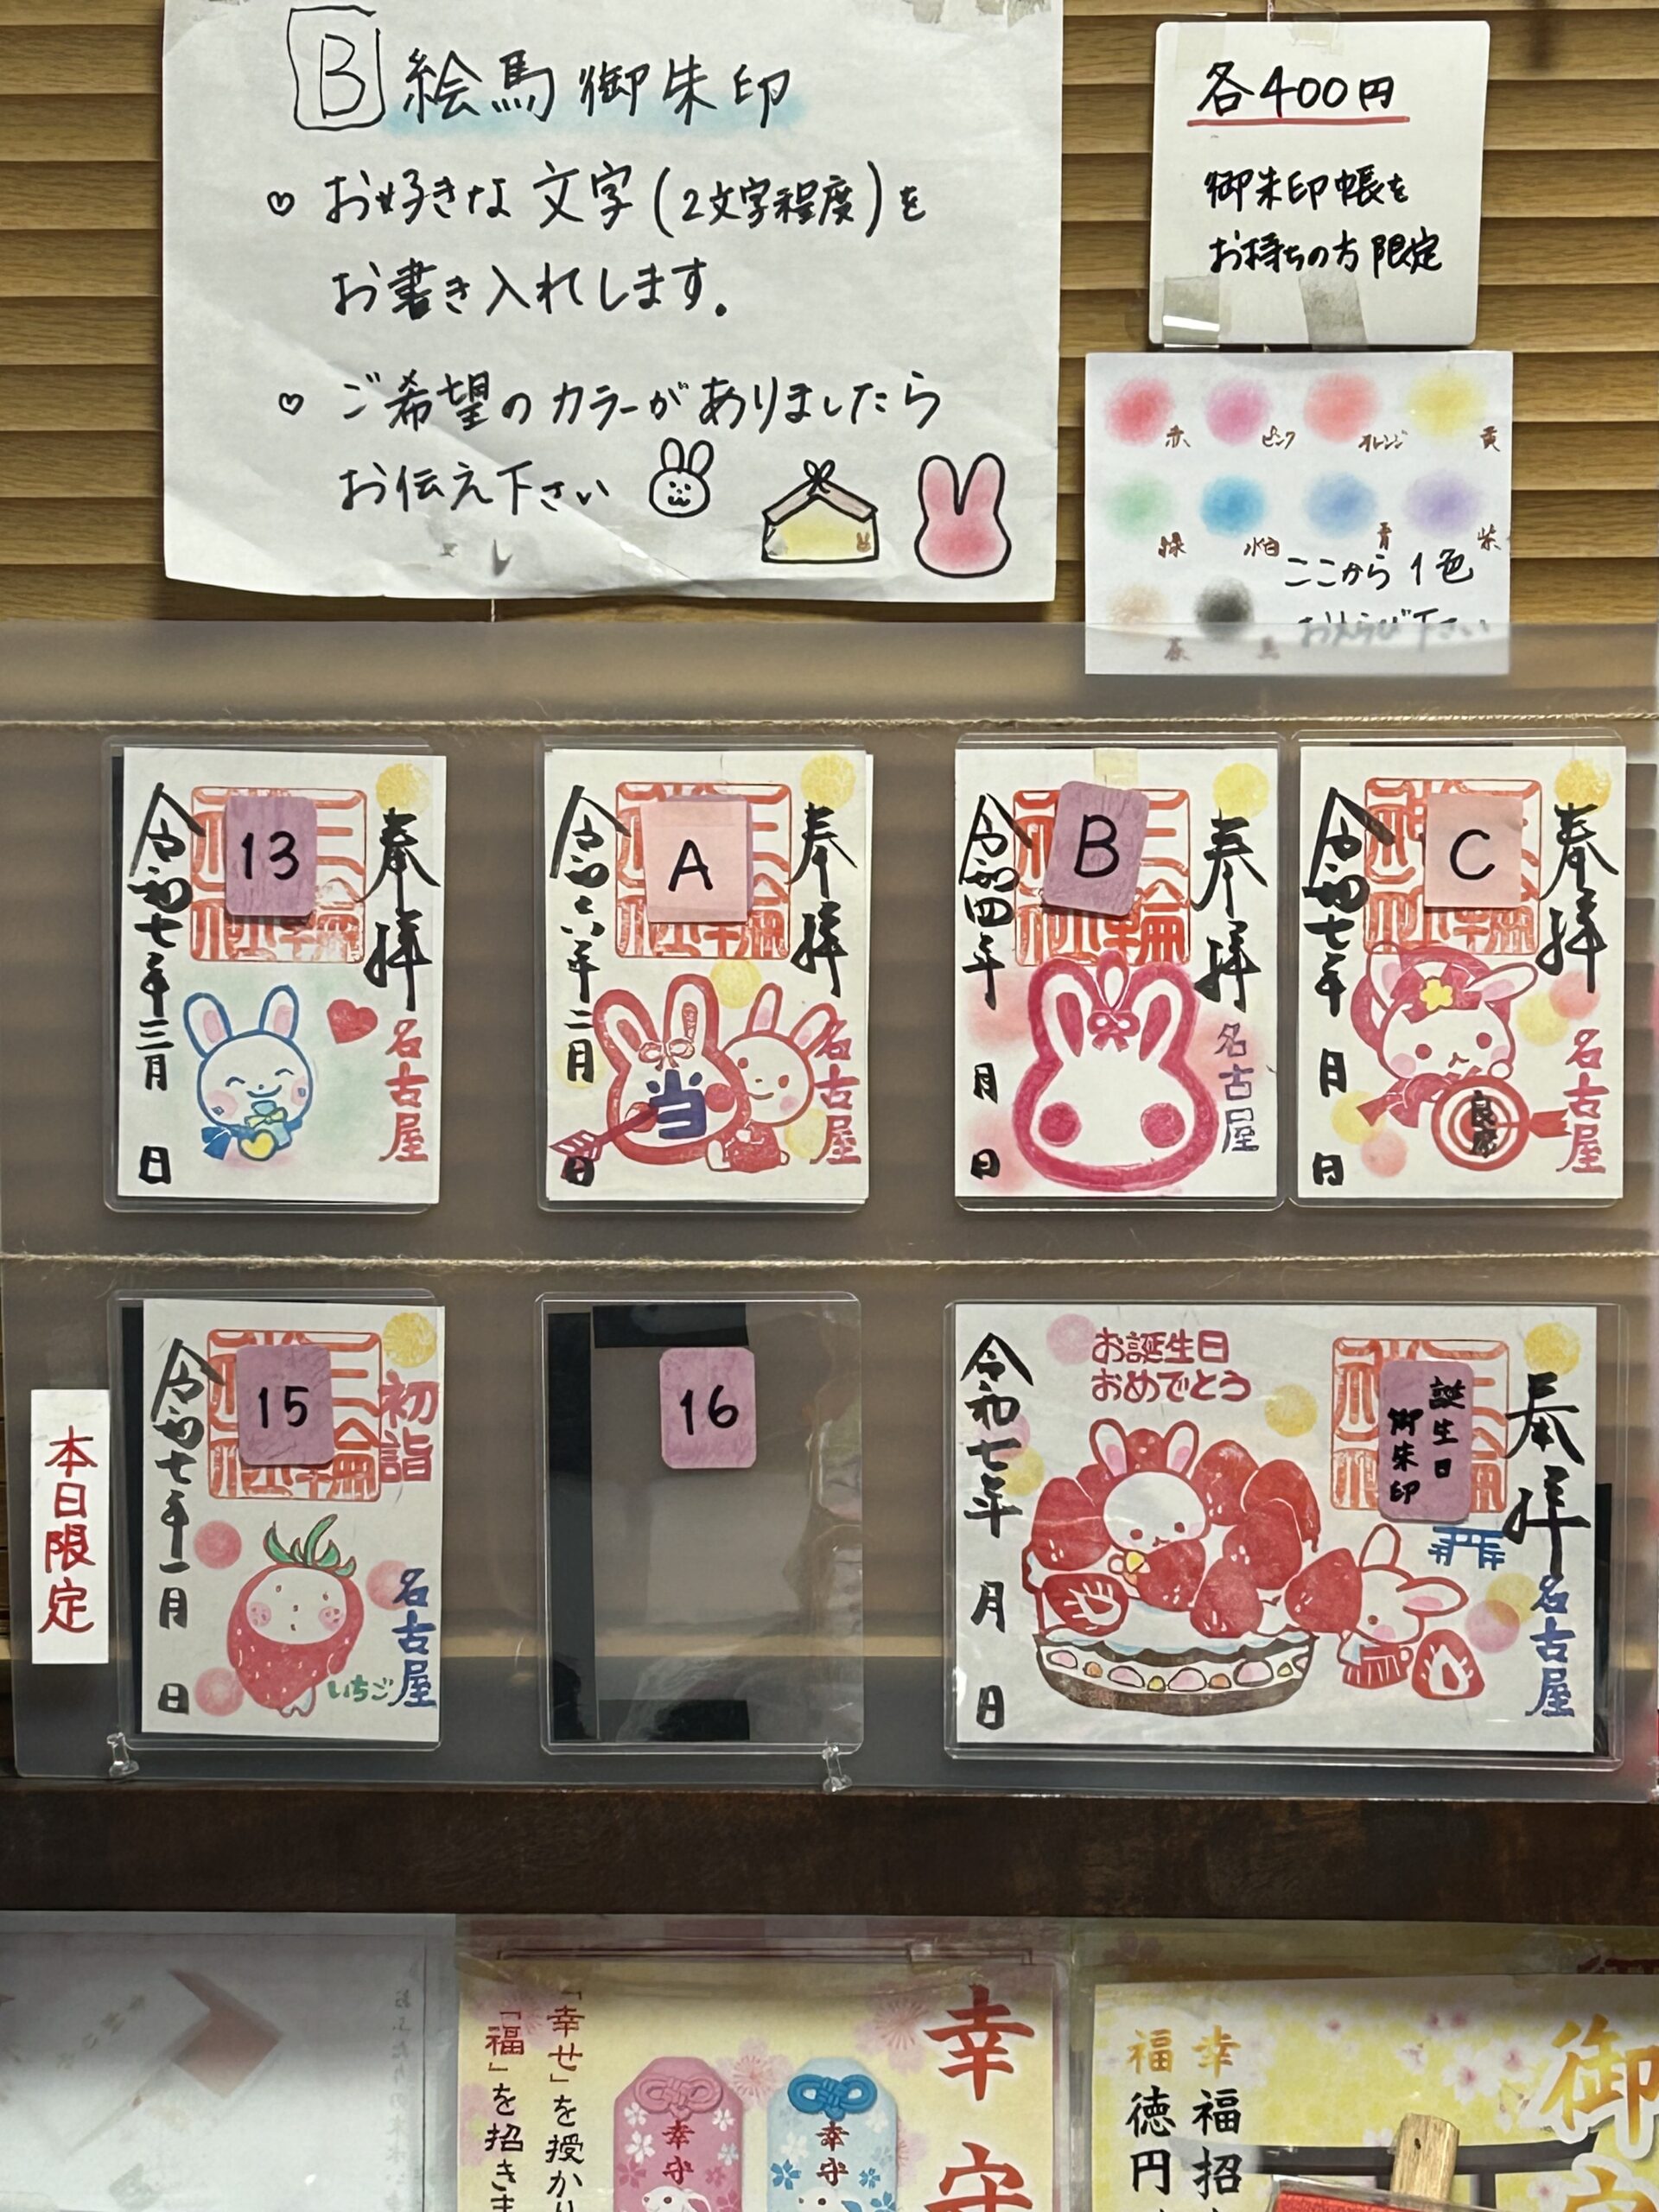 B 絵馬御朱印
♡ お好きな文字(2文字程度)を
お書き入れします。
♡ ご希望のカラーがありましたら
お伝え下さい
各400円
御朱印帳を
お持ちの方限定
赤 ピンク オレンジ 黄
緑 水色 青 紫
ここから1色
おえらび下さい
13
奉拝
名古屋
令和七年三月 日
A
奉拝
名古屋
当
令和六年二月 日
B
奉拝
名古屋
令和四年 月 日
C
奉拝
名古屋
令和七年 月 日
本日限定
15
初詣
名古屋
いちご
令和七年一月 日
16
奉拝
名古屋
誕生日
御朱印
お誕生日
おめでとう
令和七年 月 日
幸守
「幸せ」を授か
「福」を招きま
幸守
幸守
御
幸福招
福徳円